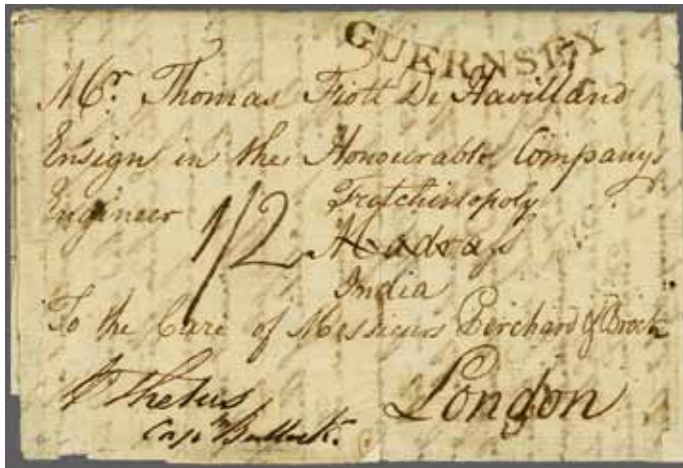 GUERNSEY
Mr. Thomas Fiott De Havilland
Ensign in the Honourable Company's
Engineer Tritchinopoly
1/2 Madras
India
To the Care of Messieurs Perchard & Brock
London
Thetis
Capn Bullock